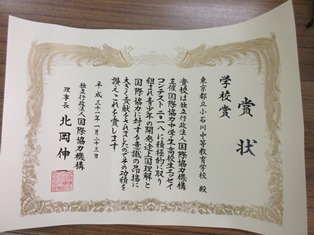 賞状
学校賞
東京都立小石川中等教育学校 殿
貴校は独立行政法人国際協力機構
主催国際協力中学生・高校生エッセイ
コンテスト二〇一八に積極的に取り
組まれ青少年の開発途上国理解と
国際協力に対する意識の昂揚に
大きく貢献をされましたのでその功績を
讃えこれを賞します
平成三十一年一月二十三日
独立行政法人国際協力機構
理事長 北岡伸一